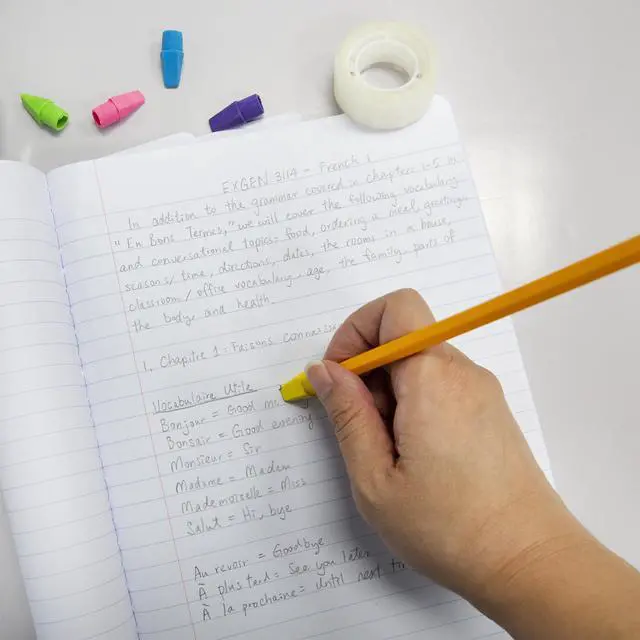 EXGEN 3114 - French 1
In addition to the grammar covered in chapters 1-5 in
"En Bons Termes," we will cover the following vocabulary
and conversational topics: food, ordering a meal, greetings
seasons/time, directions, dates, the rooms in a house,
classroom/office vocabulary, age, the family, parts of
the body and health.
1. Chapitre 1: Faisons
Vocabulaire Utile
Bonjour = Good
Bonsoir = Good evening
Monsieur = Sir
Madame = Madam
Mademoiselle = Miss
Salut = Hi, bye
Au revoir = Goodbye
À plus tard = See you later
À la prochaine = Until next